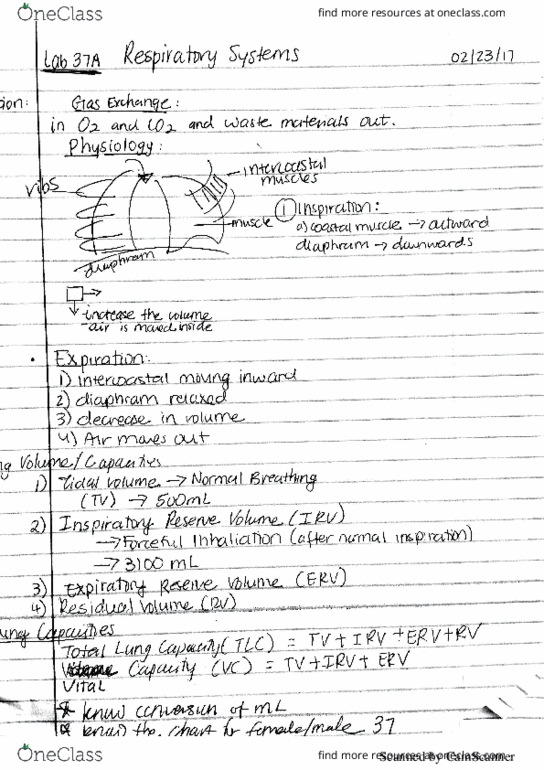 OneClass
find more resources at oneclass.com
Lab 37A Respiratory Systems 02/23/17
ion: Gas Exchange:
in O2 and CO2 and waste materials out.
Physiology:
intercoastal
muscles
ribs
muscle
① Inspiration:
a) coastal muscle → outward
diaphram → downwards
diaphram
increase the volume
-air is moved inside
• Expiration:
1) intercoastal moving inward
2) diaphram relaxed
3) decrease in volume
4) Air moves out
ng Volume/Capacities
1) Tidal volume → Normal Breathing
(TV) → 500mL
2) Inspiratory Reserve Volume (IRV)
→ Forceful Inhaliation (after normal inspiration)
→ 3100 mL
3) Expiratory Reserve Volume (ERV)
4) Residual Volume (RV)
ung Capacities
Total Lung Capacity (TLC) = TV + IRV + ERV + RV
Capacity (VC) = TV + IRV + ERV
Vital
* know conversion of mL
know the chart for female/male 37
OneClass
find more resources at oneclass.com
Scanned by CamScanner